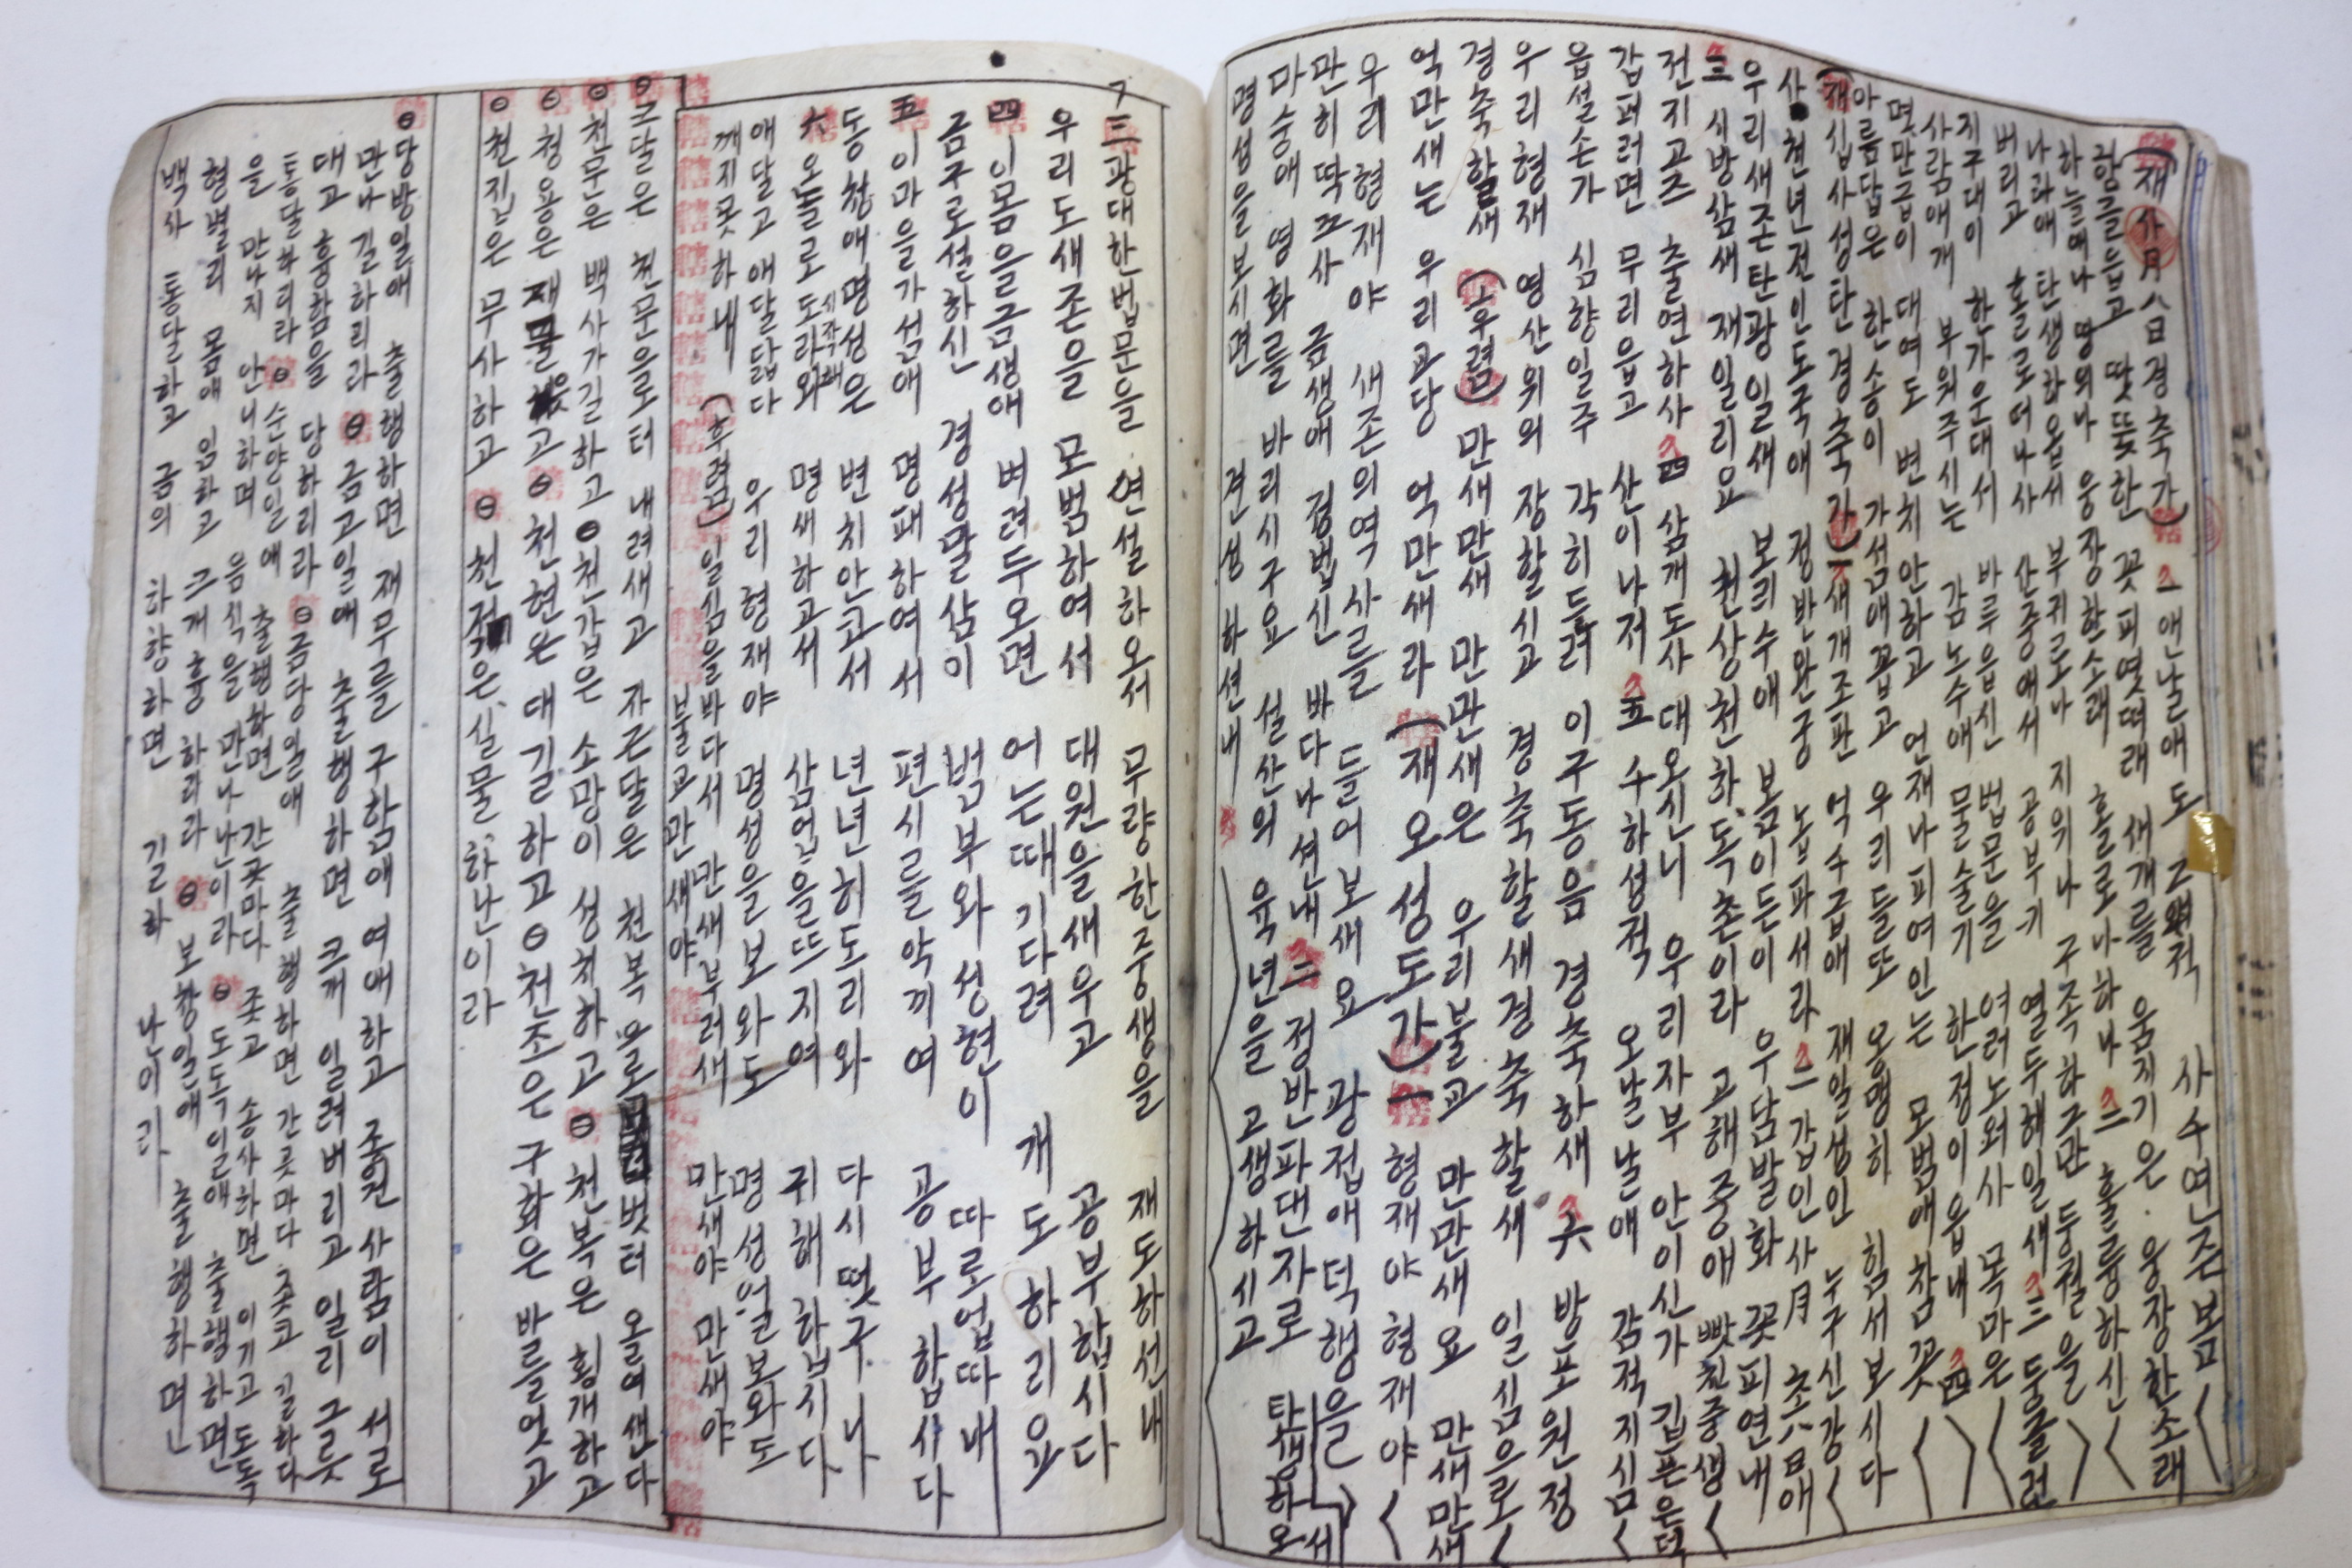 (재사月八日경축가) 一 앤날애도 그적 사수면존봄
함름듭고 땃뜻한 꽃피몃떠래 새개를 움지기은 웅장한소래
하늘애나 땅의나 웅장한소래 홀로나하나 二 훌륭하신
나라애 탄생하옵서 부귀로나 지위나 구족하구만 두궐을
버리고 홀로떠나사 산중애서 공부기 열두해일새 三 둥글런
지구대이 한가운대서 바루읍신 법문을 여러노외사 목마은
사람애개 부워주시는 감노수애 물술기 한정이읍내 四
몃만급이 대여도 변치안하고 언재나피여인는 모범애참꽃
아름답은 한송이 가섬애꼽고 우리들또 용맹히 힘서보시다
(재십사성탄경축가) 一 새개조판 억수급애 재일성인 누구신강
사천년전인도국애 정반완궁 높파서라 二 갑인사月 초八日애
우리새존탄광일새 보리수애 봄이든이 우담발화 꽃피연내
三 시방삼새 재일리요 천상천하독존이라 고해중애 빳친중생
전지고즈 출연하사 四 삼개도사 대오신니 우리자부 안이신가 깁픈은덕
갑퍼러면 무리읍고 산이나저 五 수하성적 오날날애 감적지심
읍설손가 심향일주 각히들러 이구동음 경축하새 六 방포원정
우리형재 영산위의 장할시고 경축할새경축할새 일심으로
경축할새 (후렴) 만새만새 만만새은 우리불교 만만새요 만새만새
억만새는 우리교당 억만새라 (재오성도가) 一 형재야 형재야
우리형재야 새존의역사를 들어보새요 광접애덕행을
만히딱그사 금생애 정법신 바다나션내 二 정반파대자로 탄생하오서
마숭애 영화를 바리시구요 설산의 육년을 고생하시고
명성을보시면 견성 하션내
三 광대한법문을 연설하오서 무량한중생을 재도하선내
우리도새존을 모범하여서 대원을새우고 공부합시다
四 이몸을금생애 버려두오면 어는때기다려 개도하리요
금구로설하신 경성말삼이 범부와성현이 따로업따내
五 이마을가섬애 명패하여서 편시를악끼여 공부합사다
동청애명성은 변치안고서 년년히도리와 다시떳구나
六 오늘로도라와 시작해 명새하고서 삼업을뜨지여 귀해하봅시다
애달고 애달답다 우리형재야 명성을보와도 명성얼보와도
깨지못하내 (후렴) 일심을바다서 만새부러새 만새야 만새야
불교만새야
⊖ 근달은 천문으로터 내려새고 자근달은 천복으로 벗터 올여샌다
⊖ 천문은 백사가길하고 ⊖ 천갑은 소망이 성취하고 ⊖ 천복은 횡개하고
⊖ 청용은 재물읏고 ⊖ 천현은 대길하고 ⊖ 천조은 구화은 바를엇고
⊖ 천진은 무사하고 ⊖ 천적은 실물하난이라
⊖ 당방일애 출행하면 재무를 구함애 여애하고 조흔사람이 서로
만나 길하리라 ⊖ 금고일애 출행하면 크깨 일러버리고 일리그릇
대고 흉함을 당하리라 ⊖ 금당일애 출행하면 간곳마다 좃고 길하다
통달하리라 ⊖ 순양일애 출행하면 간곳마다 좃고 송사하면 이기고 도독
을 만나지 안니하며 음식을 만나난이라 ⊖ 도독일애 출행하면
형벌리 몸애 임하고 크개흉하리라 ⊖ 보창일애 출행하며난
백사 통달하고 금의 하향하면 길하 나이라